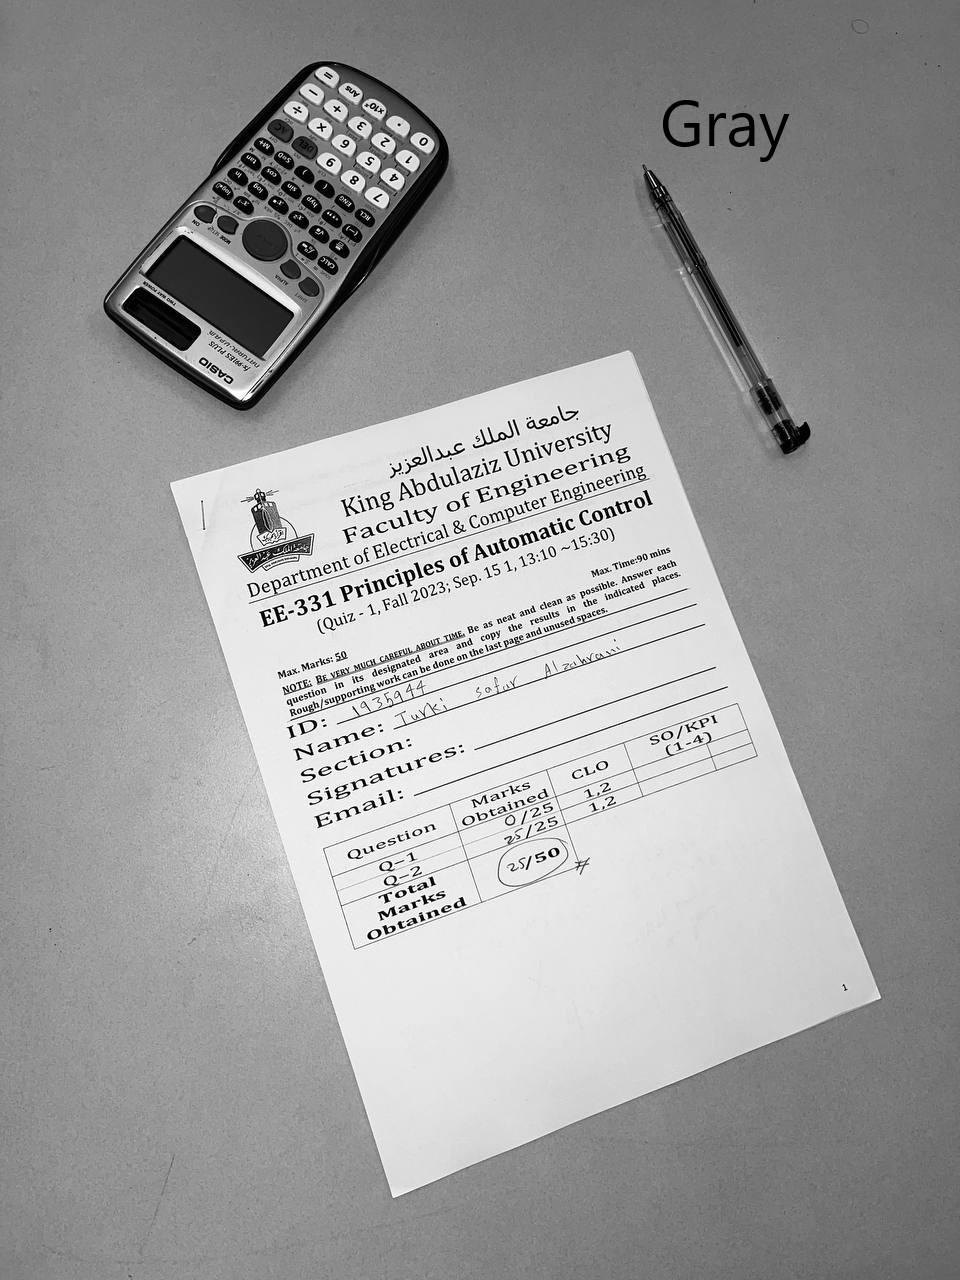 Gray
CASIO
fx-991ES PLUS
NATURAL-V.P.A.M.
TWO WAY POWER
جامعة الملك عبدالعزيز
King Abdulaziz University
Faculty of Engineering
Department of Electrical & Computer Engineering
EE-331 Principles of Automatic Control
(Quiz - 1, Fall 2023; Sep. 15 1, 13:10 ~15:30)
Max. Marks: 50 Max. Time:90 mins
NOTE: BE VERY MUCH CAREFUL ABOUT TIME. Be as neat and clean as possible. Answer each
question in its designated area and copy the results in the indicated places.
Rough/supporting work can be done on the last page and unused spaces.
ID: 1935944
Name: Turki safar Alzahrani
Section:
Signatures:
Email:
Question Marks Obtained CLO SO/KPI (1-4)
Q-1 0/25 1,2
Q-2 25/25 1,2
Total Marks Obtained 25/50
1